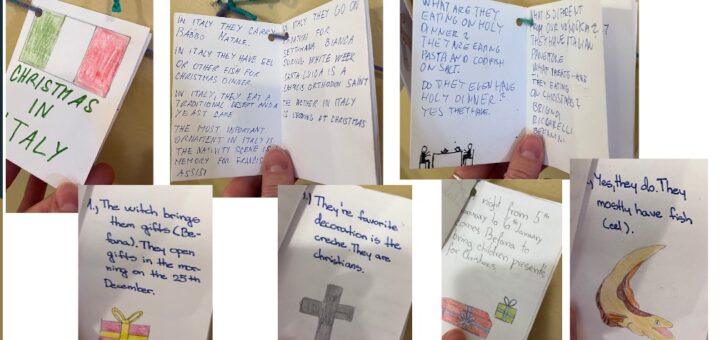 CHRISTMAS
IN
ITALY
IN ITALY THEY CARRY
BABBO NATALE.
IN ITALY THEY HAVE EEL
OR OTHER FISH FOR
CHRISTMAS DINNER.
IN ITALY, THEY EAT A
TRADITIONAL
YEAST CAKE
THE MOST IMPORTANT
ORNAMENT IN ITALY IS
THE NATIVITY SCENE IN
MEMORY FOR
ASSISI
ITALY THEY GO ON
FOR
SETTIMANA BIANCA
WHITE WEEK
SANTA LUCIA IS A
ORTHODOX SAINT
THE IN ITALY
IS AT CHRISTMAS
WHAT ARE THEY
EATING ON HOLY
DINNER?
THE ARE EATING
PASTA AND CODFISH
ON SALT.
DO THEY EVEN HAVE
HOLY DINNER?
YES THEY HAVE.
WHAT IS DIFFERENT
FROM OUR
THEY HAVE ITALIAN
PANETONE
WHAT
THEY EATING
ON CHRISTMAS?
RICCIARELLI
1.) The witch brings
them gifts (Be-
fana). They open
gifts in the mor-
ning on the 25th
December.
1.) They're favorite
decoration is the
creche. They are
christians.
night from 5th
January to 6th January
comes Befana to
bring children presents
for
Yes, they do. They
mostly have fish
(eel).